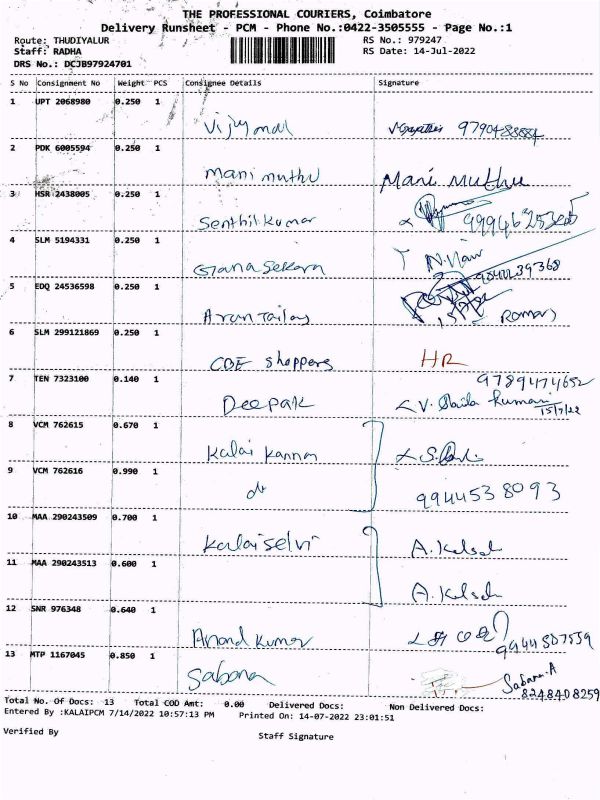 THE PROFESSIONAL COURIERS, Coimbatore
Delivery Runsheet - PCM - Phone No.:0422-3505555 - Page No.:1
Route: THUDIYALUR
RS No.: 979247
Staff: RADHA
RS Date: 14-Jul-2022
DRS No.: DCJB97924701
S No Consignment No Weight PCS Consignee Details Signature
1 UPT 2068980 0.250 1
Vijymal
2 PDK 6005594 0.250 1
Mani muthu Mani Muthu
3 HSR 2438005 0.250 1
Senthil kumar
4 SLM 5194331 0.250 1
Gnana Sekara
5 EDQ 24536598 0.250 1
Arun Tailas
6 SLM 299121869 0.250 1
CBE Shoppers HR
7 TEN 7323100 0.140 1
9789474652
Deepak V. Shaila kumari
15/7/22
8 VCM 762615 0.670 1
Kalai Kannan
9 VCM 762616 0.990 1
do 9944538093
10 MAA 290243509 0.700 1
Kalaiselvi
11 MAA 290243513 0.600 1
12 SNR 976348 0.640 1
Anand Kumar 9944507559
13 MTP 1167045 0.850 1
Sabana Sabana.A
8248408259
Total No. Of Docs: 13 Total COD Amt: 0.00 Delivered Docs: Non Delivered Docs:
Entered By :KALAIPCM 7/14/2022 10:57:13 PM Printed On: 14-07-2022 23:01:51
Verified By
Staff Signature